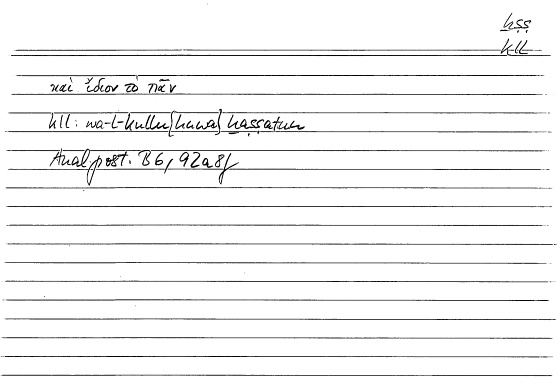 ḫṣṣ
kll
καὶ ἴδιον τὸ πᾶν
kll: wa-l-kullu {huwa} ḫaṣṣatun
Anal. post. B 6, 92a8f